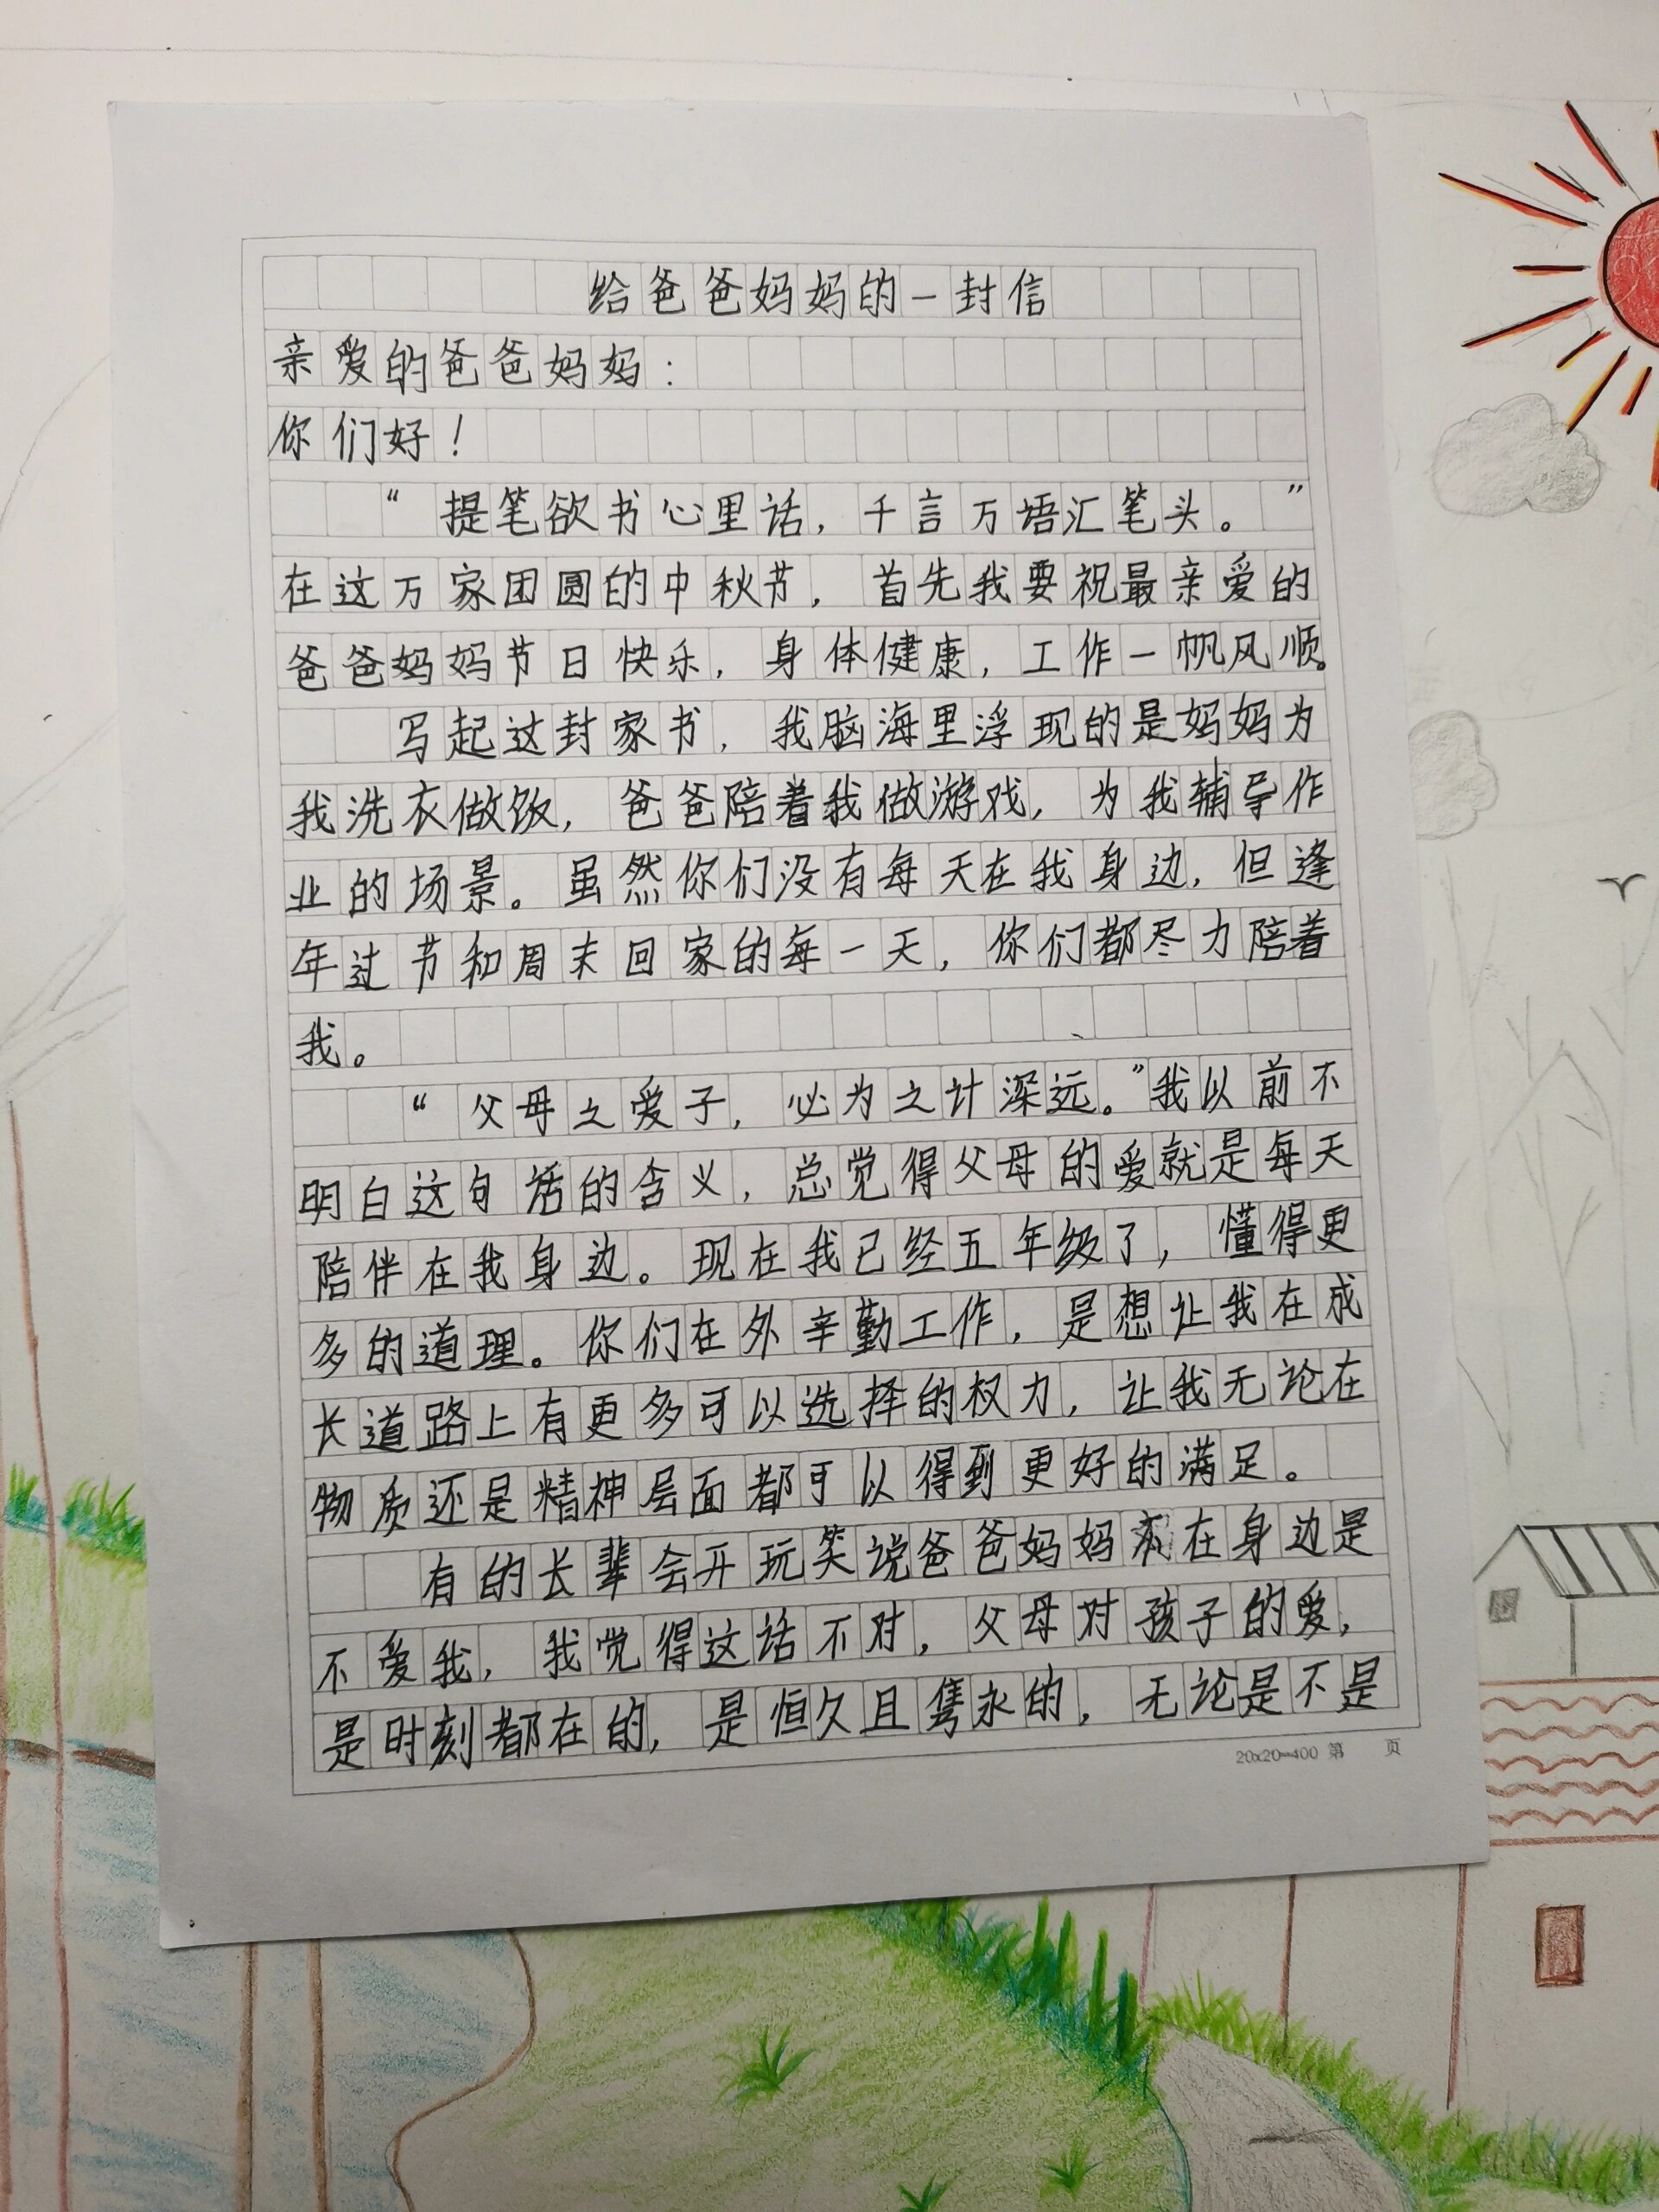 给爸爸妈妈的一封信
亲爱的爸爸妈妈：
你们好！
“提笔欲书心里话，千言万语汇笔头。”
在这万家团圆的中秋节，首先我要祝最亲爱的
爸爸妈妈节日快乐，身体健康，工作一帆风顺。
写起这封家书，我脑海里浮现的是妈妈为
我洗衣做饭，爸爸陪着我做游戏，为我辅导作
业的场景。虽然你们没有每天在我身边，但逢
年过节和周末回家的每一天，你们都尽力陪着
我。
“父母之爱子，必为之计深远。”我以前不
明白这句话的含义，总觉得父母的爱就是每天
陪伴在我身边。现在我已经五年级了，懂得更
多的道理。你们在外辛勤工作，是想让我在成
长道路上有更多可以选择的权力，让我无论在
物质还是精神层面都可以得到更好的满足。
有的长辈会开玩笑说爸爸妈妈在身边是
不爱我，我觉得这话不对，父母对孩子的爱，
是时刻都在的，是恒久且隽永的，无论是不是
20x20=400 第 页